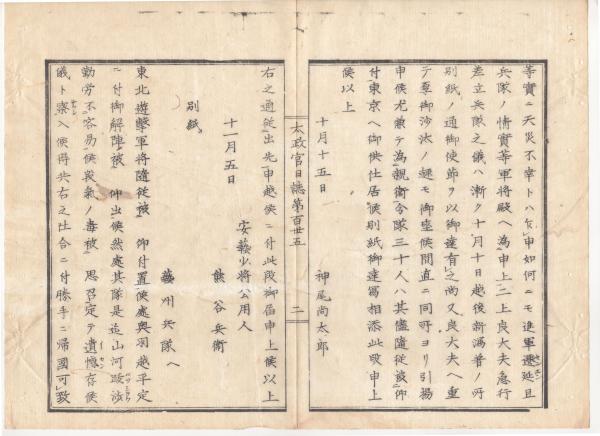 等實ニ天災不幸トハ乍申如何ニモ進軍遷延且
兵隊ノ情實等軍將殿ヘ為申上ニ上良大夫急行
差立兵隊之儀ハ漸ク十月十日越後新潟着ノ所
別紙ノ通御使節ヲ以御達有之尚又良大夫ヘ重
テ尊御沙汰ノ趣モ御座候間直ニ同所ヨリ引揚
申候尤兼テ為親衛令隊三十人ハ其儘隨從被仰
付東京ヘ御供仕居候別紙御達写相添此段申上
候以上
十月十五日
神尾尚太郎
太政官日誌第百廿五
二
右之通從出先申越候ニ付此段御届申上候以上
十一月五日
安藝少將公用人
熊谷兵衛
別紙
藝州兵隊ヘ
東北遊撃軍將隨從被 仰付置候處奥羽越平定
ニ付御解陣被 仰出候然處其隊是迄山河跋渉
勤勞不容易候段氣ノ毒被 思召定テ遺憾存候
儀ト察入候得共右之仕合ニ付勝手ニ歸國可致